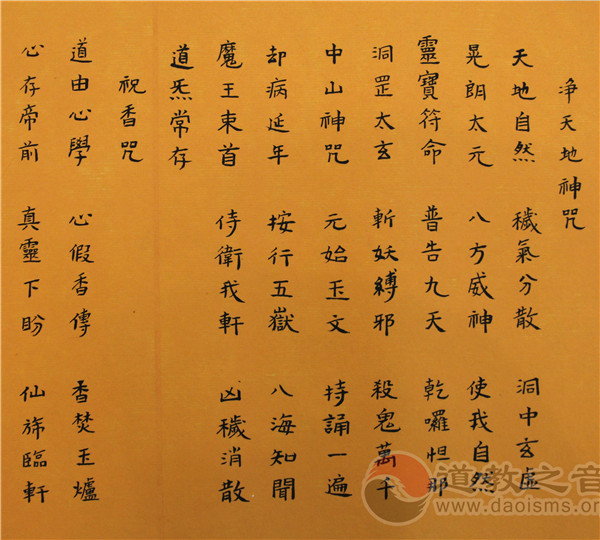 净天地神咒
天地自然 穢氣分散 洞中玄虛
晃朗太元 八方威神 使我自然
靈寶符命 普告九天 乾囉怛那
洞罡太玄 斬妖縛邪 殺鬼萬千
中山神咒 元始玉文 持誦一遍
却病延年 按行五嶽 八海知聞
魔王束首 侍衛我軒 凶穢消散
道炁常存
祝香咒
道由心學 心假香傳 香焚玉爐
心存帝前 真靈下盼 仙旆臨軒
道教之音
www.daoisms.org